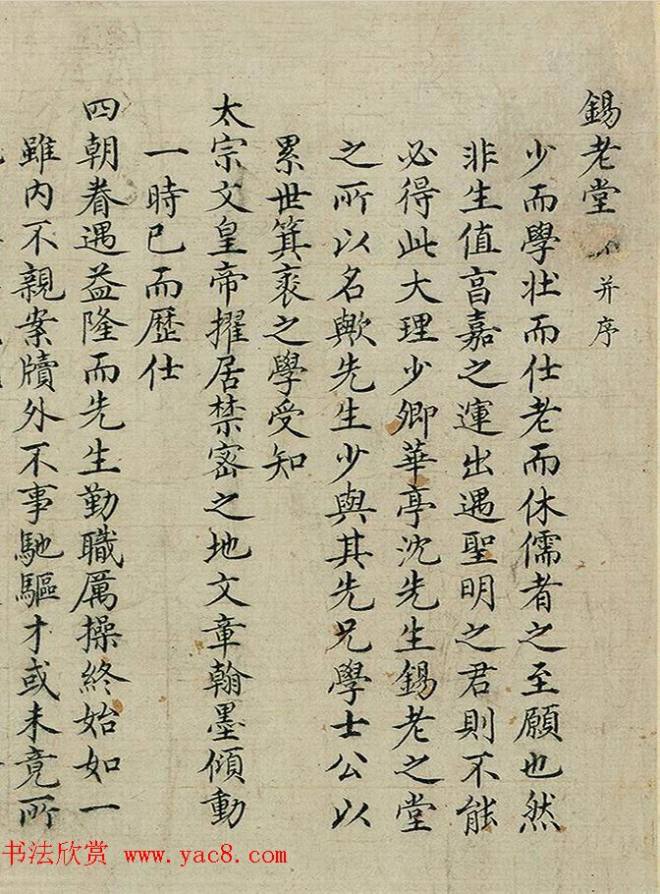 錫老堂 并序
少而學壯而仕老而休儒者之至願也然
非生值亯嘉之運出遇聖明之君則不能
必得此大理少卿華亭沈先生錫老之堂
之所以名歟先生少與其先兄學士公以
累世箕裘之學受知
太宗文皇帝擢居禁密之地文章翰墨傾動
一時已而歷仕
四朝眷遇益隆而先生勤職厲操終始如一
雖內不親案牘外不事馳驅才或未竟所
书法欣赏 www.yac8.com